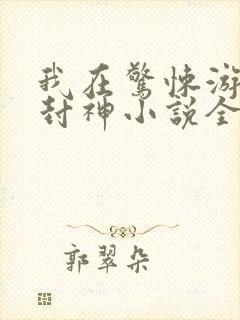 我在驚悚游
封神小説全
郭翠朵